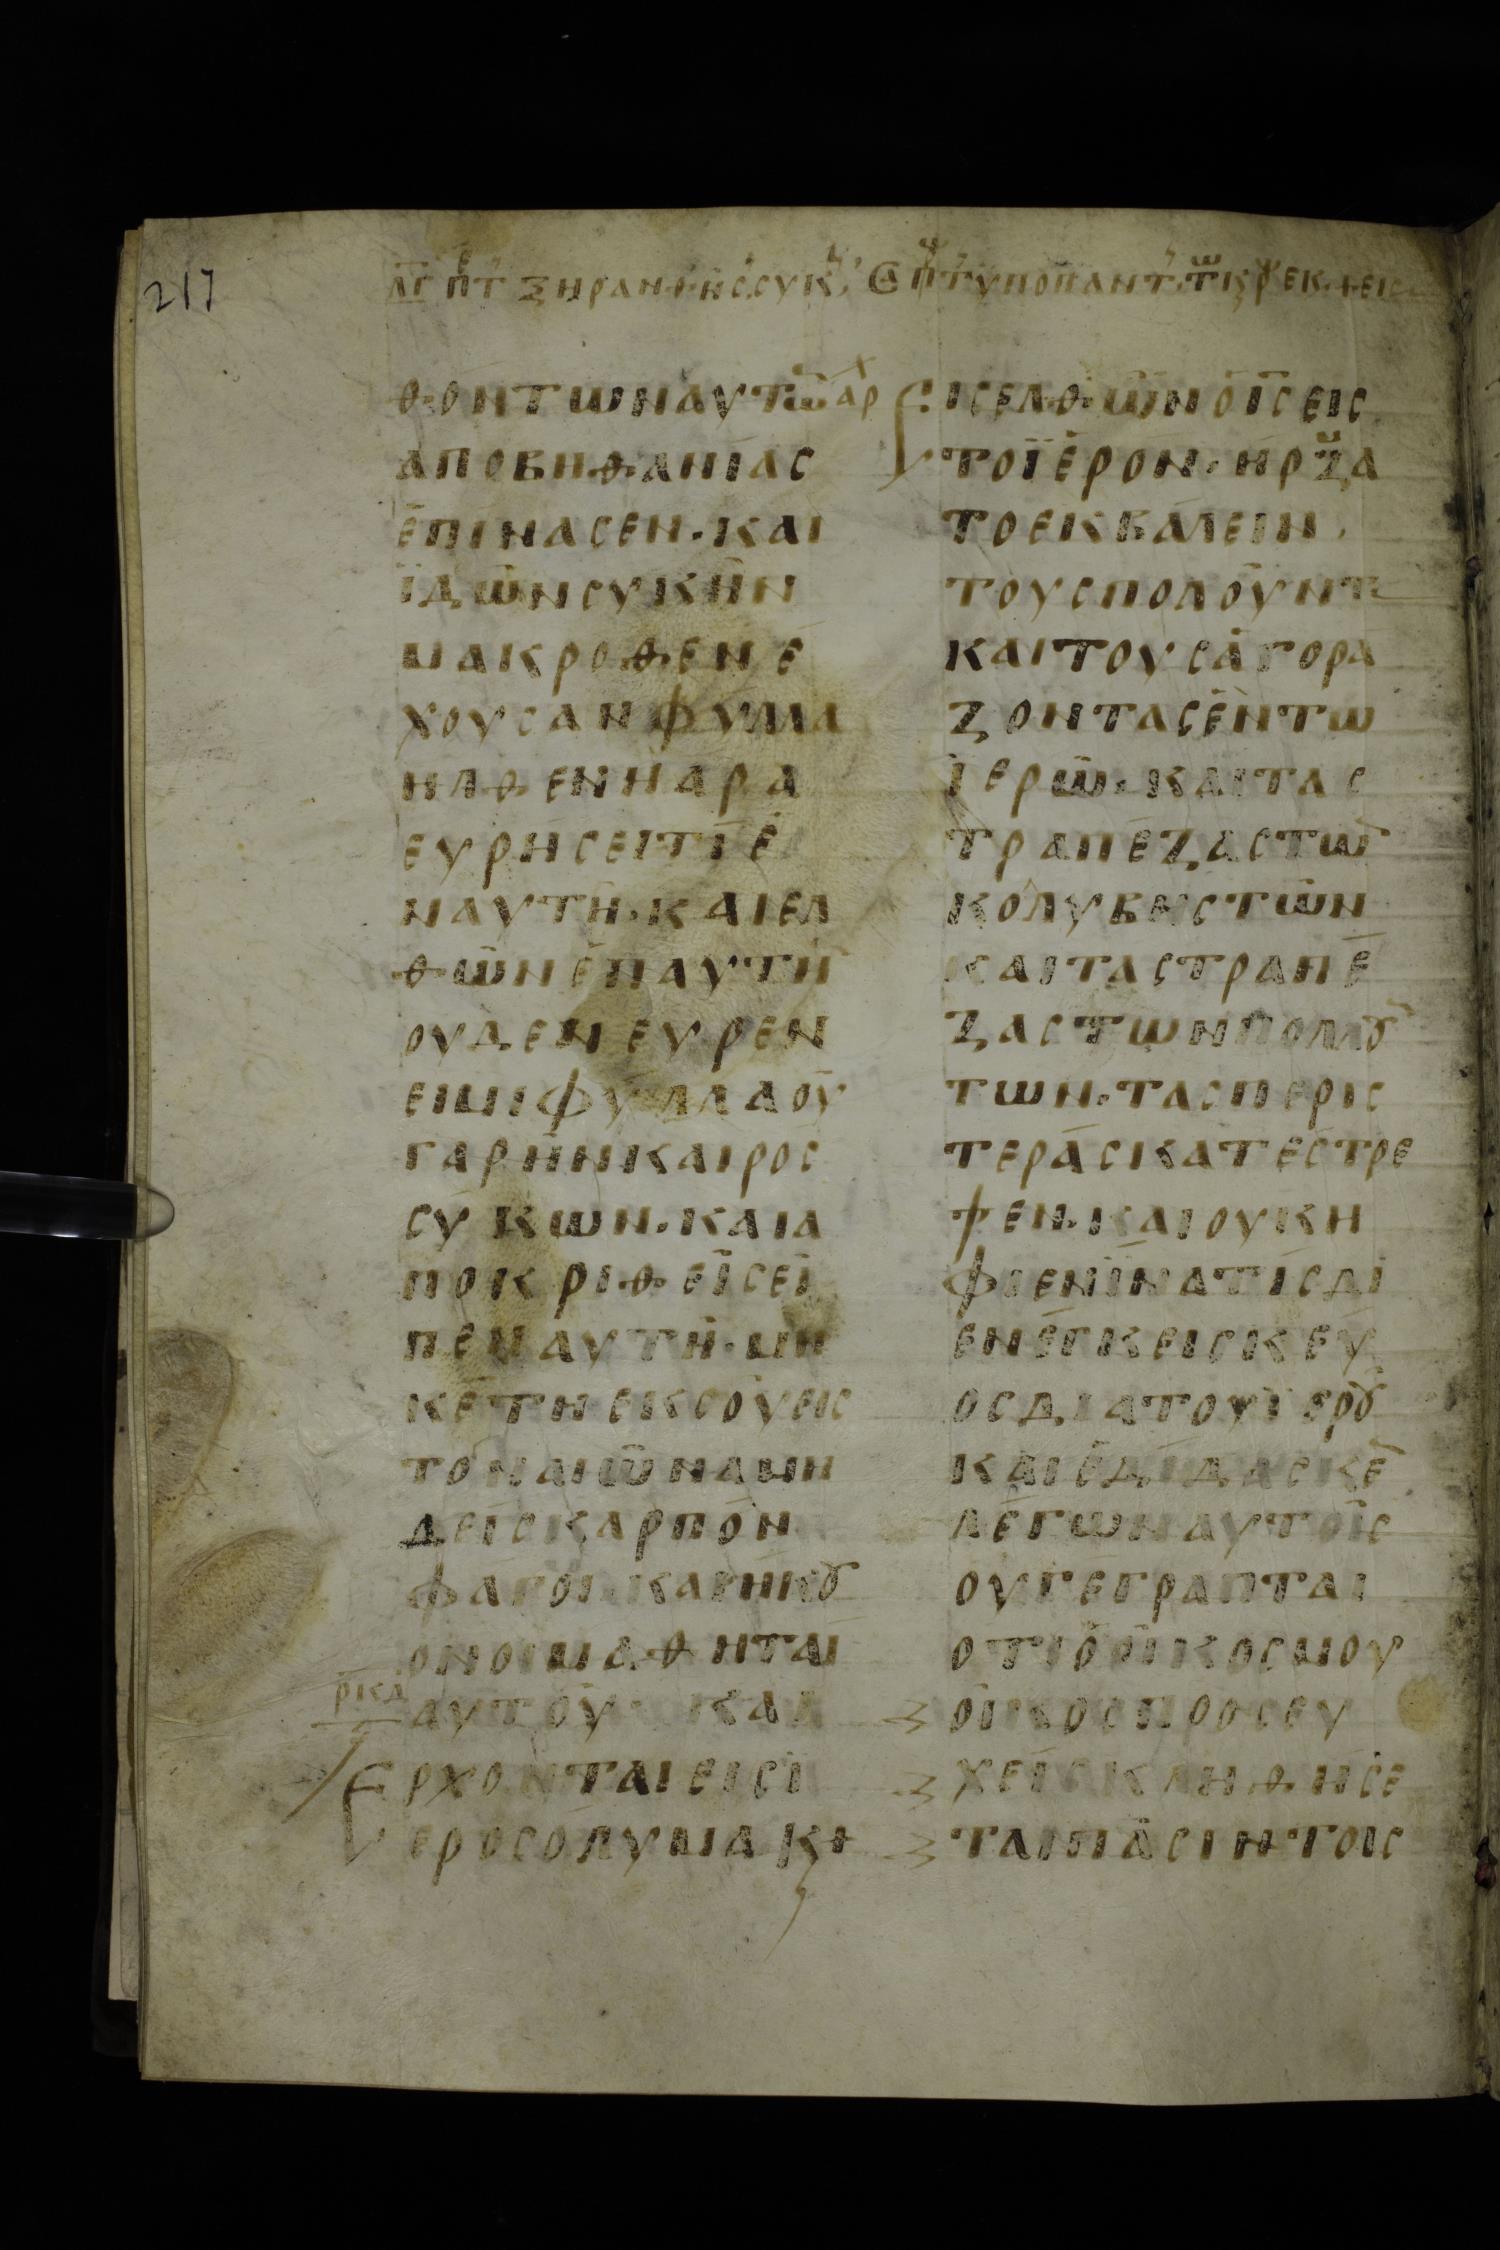 217
ΛΓ ΠΕΡΤ ΞΗΡΑΝΘΗС СΥΚ
ΘΟΝΤШΝΑΥΤШ͂ ΑΡΧ
ΑΠΟΒΗΘΑΝΙΑС
ΕΠΙΝΑСΕΝ·ΚΑΙ
ΪΔШΝСΥΚΗΝ
ΜΑΚΡΟΘΕΝΕ
ΧΟΥСΑΝΦΥΛΛΑ
ΗΛΘΕΝΗΑΡΑ
ΕΥΡΗСΕΙΤΙΕ
ΝΑΥΤΗ·ΚΑΙΕΛ
ΘШΝΕΠΑΥΤΗ
ΟΥΔΕΝΕΥΡΕΝ
ΕΙΜΙΦΥΛΛΑΟΥ
ΓΑΡΗΝΚΑΙΡΟС
СΥΚШΝ·ΚΑΙΑ
ΠΟΚΡΙΘΕΙСΕΙ
ΠΕΝΑΥΤΗ·ΜΗ
ΚΕΤΗΕΚСΟΥΕΙС
ΤΟΝΑΙШΝΑΜΗ
ΔΕΙСΚΑΡΠΟΝ
ΦΑΓΟΙ·ΚΑΙΗΚȢ
ΟΝΟΙΜΑΘΗΤΑΙ
ΑΥΤΟΥ· ΚΑΙ
ΡΚΑ
ΕΡΧΟΝΤΑΙΕΙСΙ
ΕΡΟСΟΛΥΜΑ Κϗ
ΙСΕΛΘШΝΟΙС ΕΙС
ΤΟΪΕΡΟΝ·ΗΡΞΑ
ΤΟΕΚΒΑΛΕΙΝ·
ΤΟΥСΠΟΛΟΥΝΤ
ΚΑΙΤΟΥСΑΓΟΡΑ
ΖΟΝΤΑСΕΝΤШ
ΪΕΡШ·ΚΑΙΤΑС
ΤΡΑΠΕΖΑСΤШ͂
ΚΟΛΥΒΗСΤШΝ
ΚΑΙΤΑСΤΡΑΠΕ
ΖΑСΤШΝΠΟΛΛȢ
ΤШΝ·ΤΑСΠΕΡΙС
ΤΕΡΑСΚΑΤΕСΤΡΕ
ΨΕΝ·ΚΑΙΟΥΚΗ
ΦΙΕΝΪΝΑΤΙСΔΙ
ΕΝΕΓΚΕΙСΚΕΥ
ΟСΔΙΑΤΟΥΪΕΡȢ
ΚΑΙΕΔΙΔΑСΚΕ͂
ΛΕΓШΝΑΥΤΟΙС
ΟΥΓΕΓΡΑΠΤΑΙ
ΟΤΙΟΟΙΚΟСΜΟΥ
ΟΙΚΟСΠΡΟСΕΥ
ΧΕΙСΚΛΗΘΗСΕ
ΤΑΙΠΑСΙΝΤΟΙС